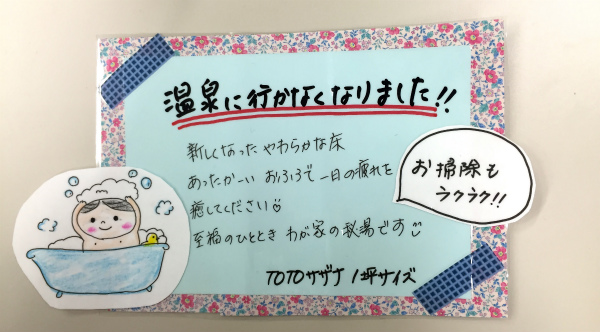 温泉に行かなくなりました!!
新しくなった やわらかな床
あったかーい おふろで 一日の疲れを
癒してください
至福のひととき わが家の秘湯です
お掃除も
ラクラク!!
TOTOサザナ 1坪サイズ